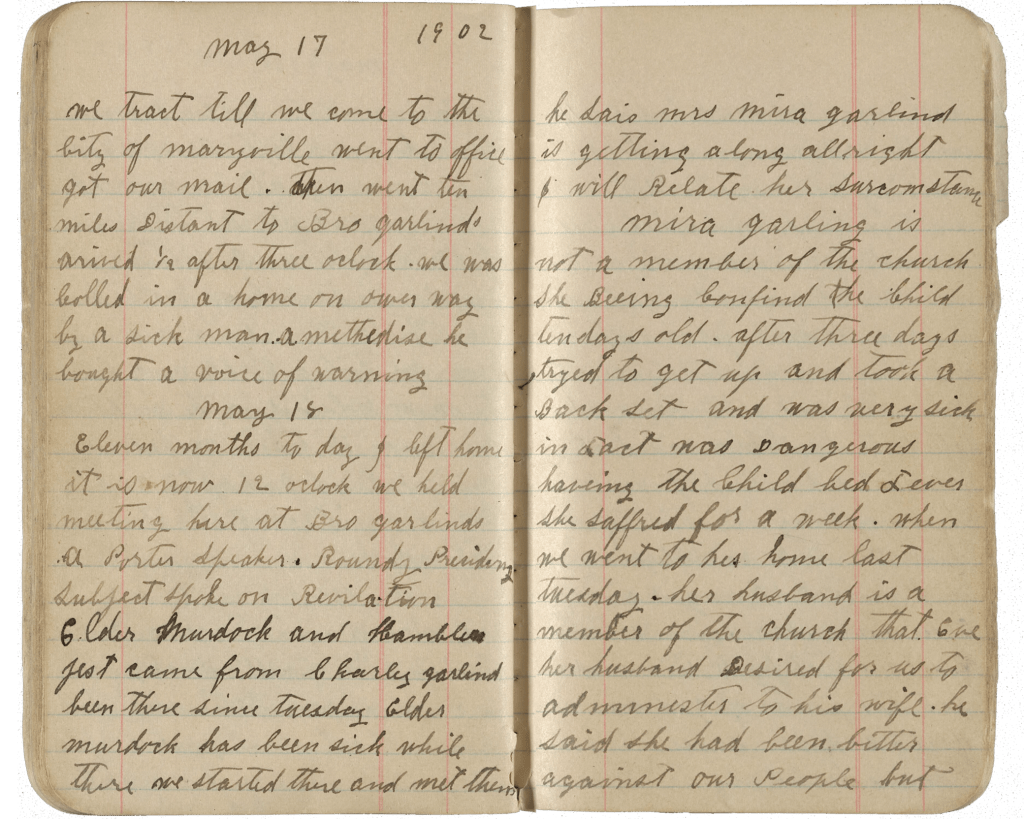 may 17 1902
we tract till we come to the
City of maryville went to office
got our mail . then went ten
miles Distant to Bro garlinds
arived ½ after three oclock . we was
Colled in a home on ower way
by a sick man . a methedise he
bought a voice of warning
may 18
Eleven months to day I left home
it is now 12 oclock we held
meeting here at Bro garlinds
A Porter speaker . Roundy Presiding
subject spoke on Revilation
Elder Murdock and Hamblen
jest came from Charley garlind
been there since tuesday Elder
murdock has been sick while
there we started there and met them
he sais mrs mira garlind
is getting along allright
I will Relate her surcomstance
mira garling is
not a member of the church
she Beeing Confind the Child
ten days old . after three days
tryed to get up and took a
Back set and was very sick
in fact was Dangerous
haveing the Child bed fever
she saffred for a week . when
we went to hes home last
tuesday . her husband is a
member of the church that Eve
her husband Desired for us to
admunester to his wife . he
said she had been bitter
against our People but